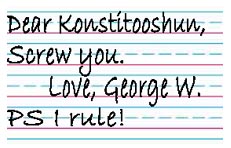 Dear Konstitooshun,
Screw you.
Love, George W.
PS I rule!